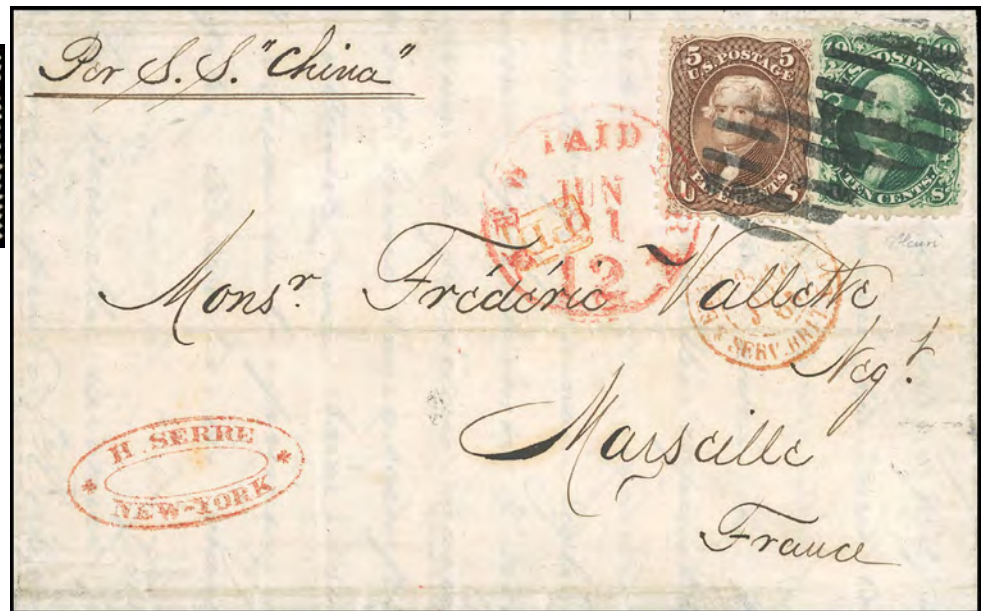 Per S. S. "China"
5 5
U.S. POSTAGE
FIVE CENTS
U S
10 10
U.S. POSTAGE
TEN CENTS.
U S
PAID
JUN
12
P.D.
Fleuri
Monsr Frédéric Vallette
SERV. BRIT.
Negt.
Marseille
France
H. SERRE
NEW-YORK